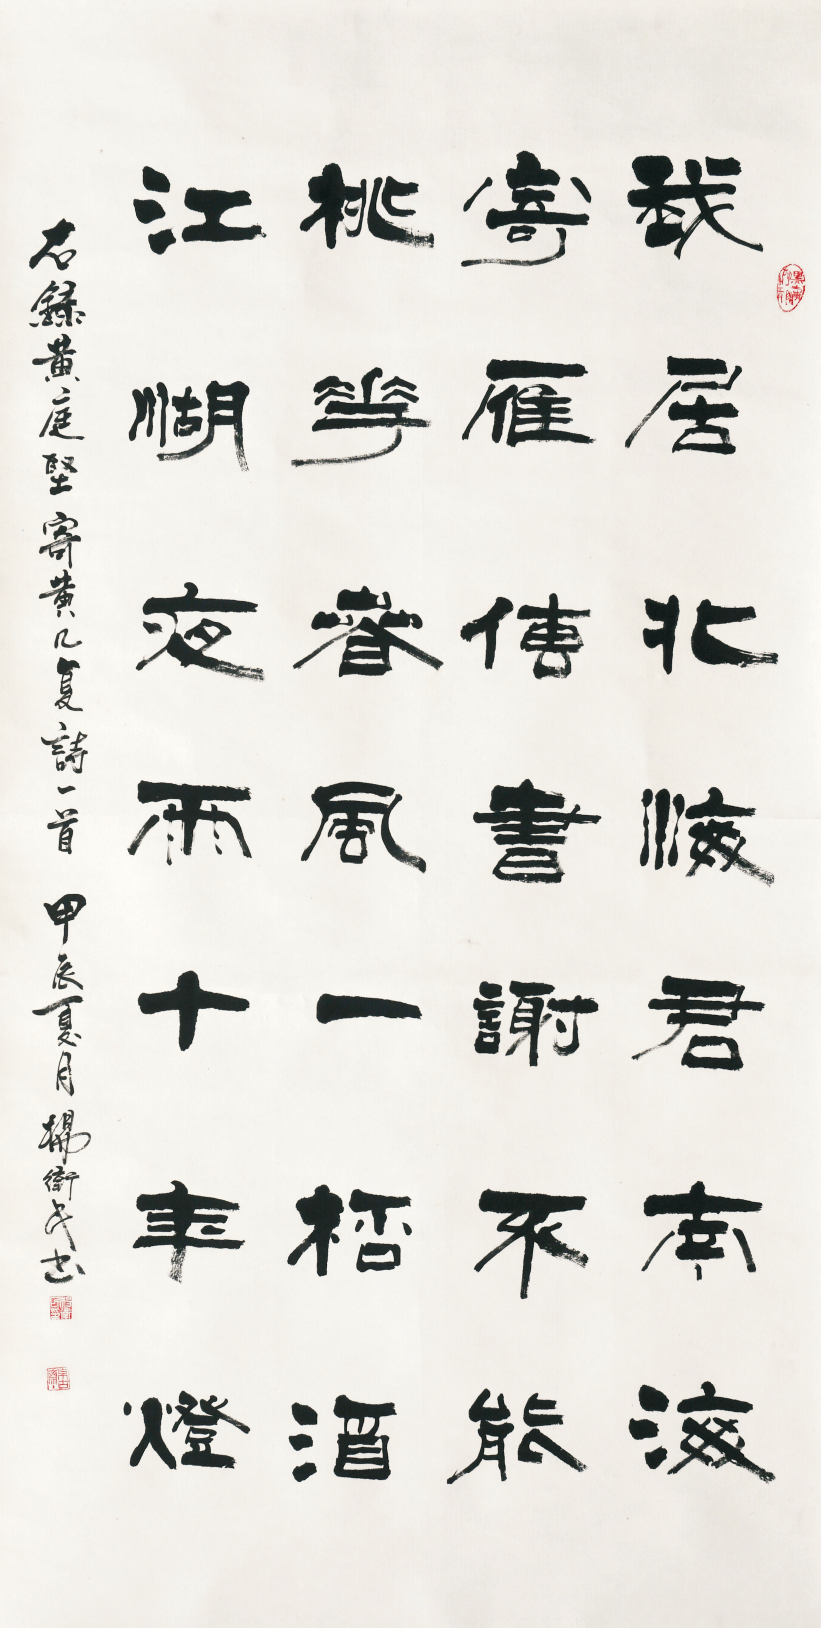 我居北海君南海
寄雁傳書謝不能
桃花春風一桮酒
江湖夜雨十年燈
右錄黃庭堅寄黃几复詩一首 甲辰夏月 楊衛民书